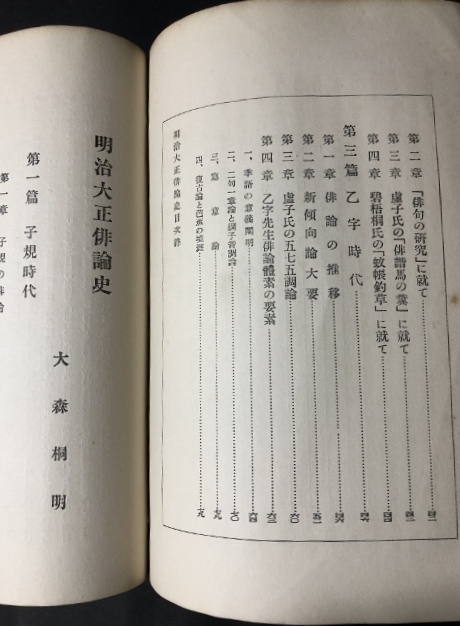 第二章 「俳句の研究」に就て
第三章 虚子氏の「俳諧馬の糞」に就て
第四章 碧梧桐氏の「蚊帳釣草」に就て
第三篇 乙字時代
第一章 俳論の推移
第二章 新傾向論大要
第三章 虚子氏の五七五調論
第四章 乙字先生俳論體素の要素
一、季語の意義闡明
二、二句一章論と調子音調論
三、寫意論
四、復古論と芭蕉の
明治大正俳論史目次終
明治大正俳論史
大森桐明
第一篇 子規時代
第一章 子規の俳論